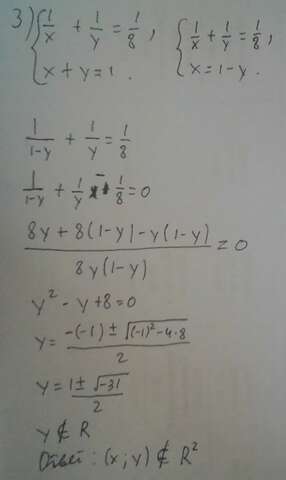 3) { 1/x + 1/y = 1/8, { 1/x + 1/y = 1/8,
x + y = 1. x = 1 - y.
1/(1-y) + 1/y = 1/8
1/(1-y) + 1/y - 1/8 = 0
(8y + 8(1-y) - y(1-y))/(8y(1-y)) = 0
y² - y + 8 = 0
y = (-(-1) ± √((-1)² - 4·8))/2
y = (1 ± √-31)/2
y ∉ R
Ответ: (x; y) ∉ R²